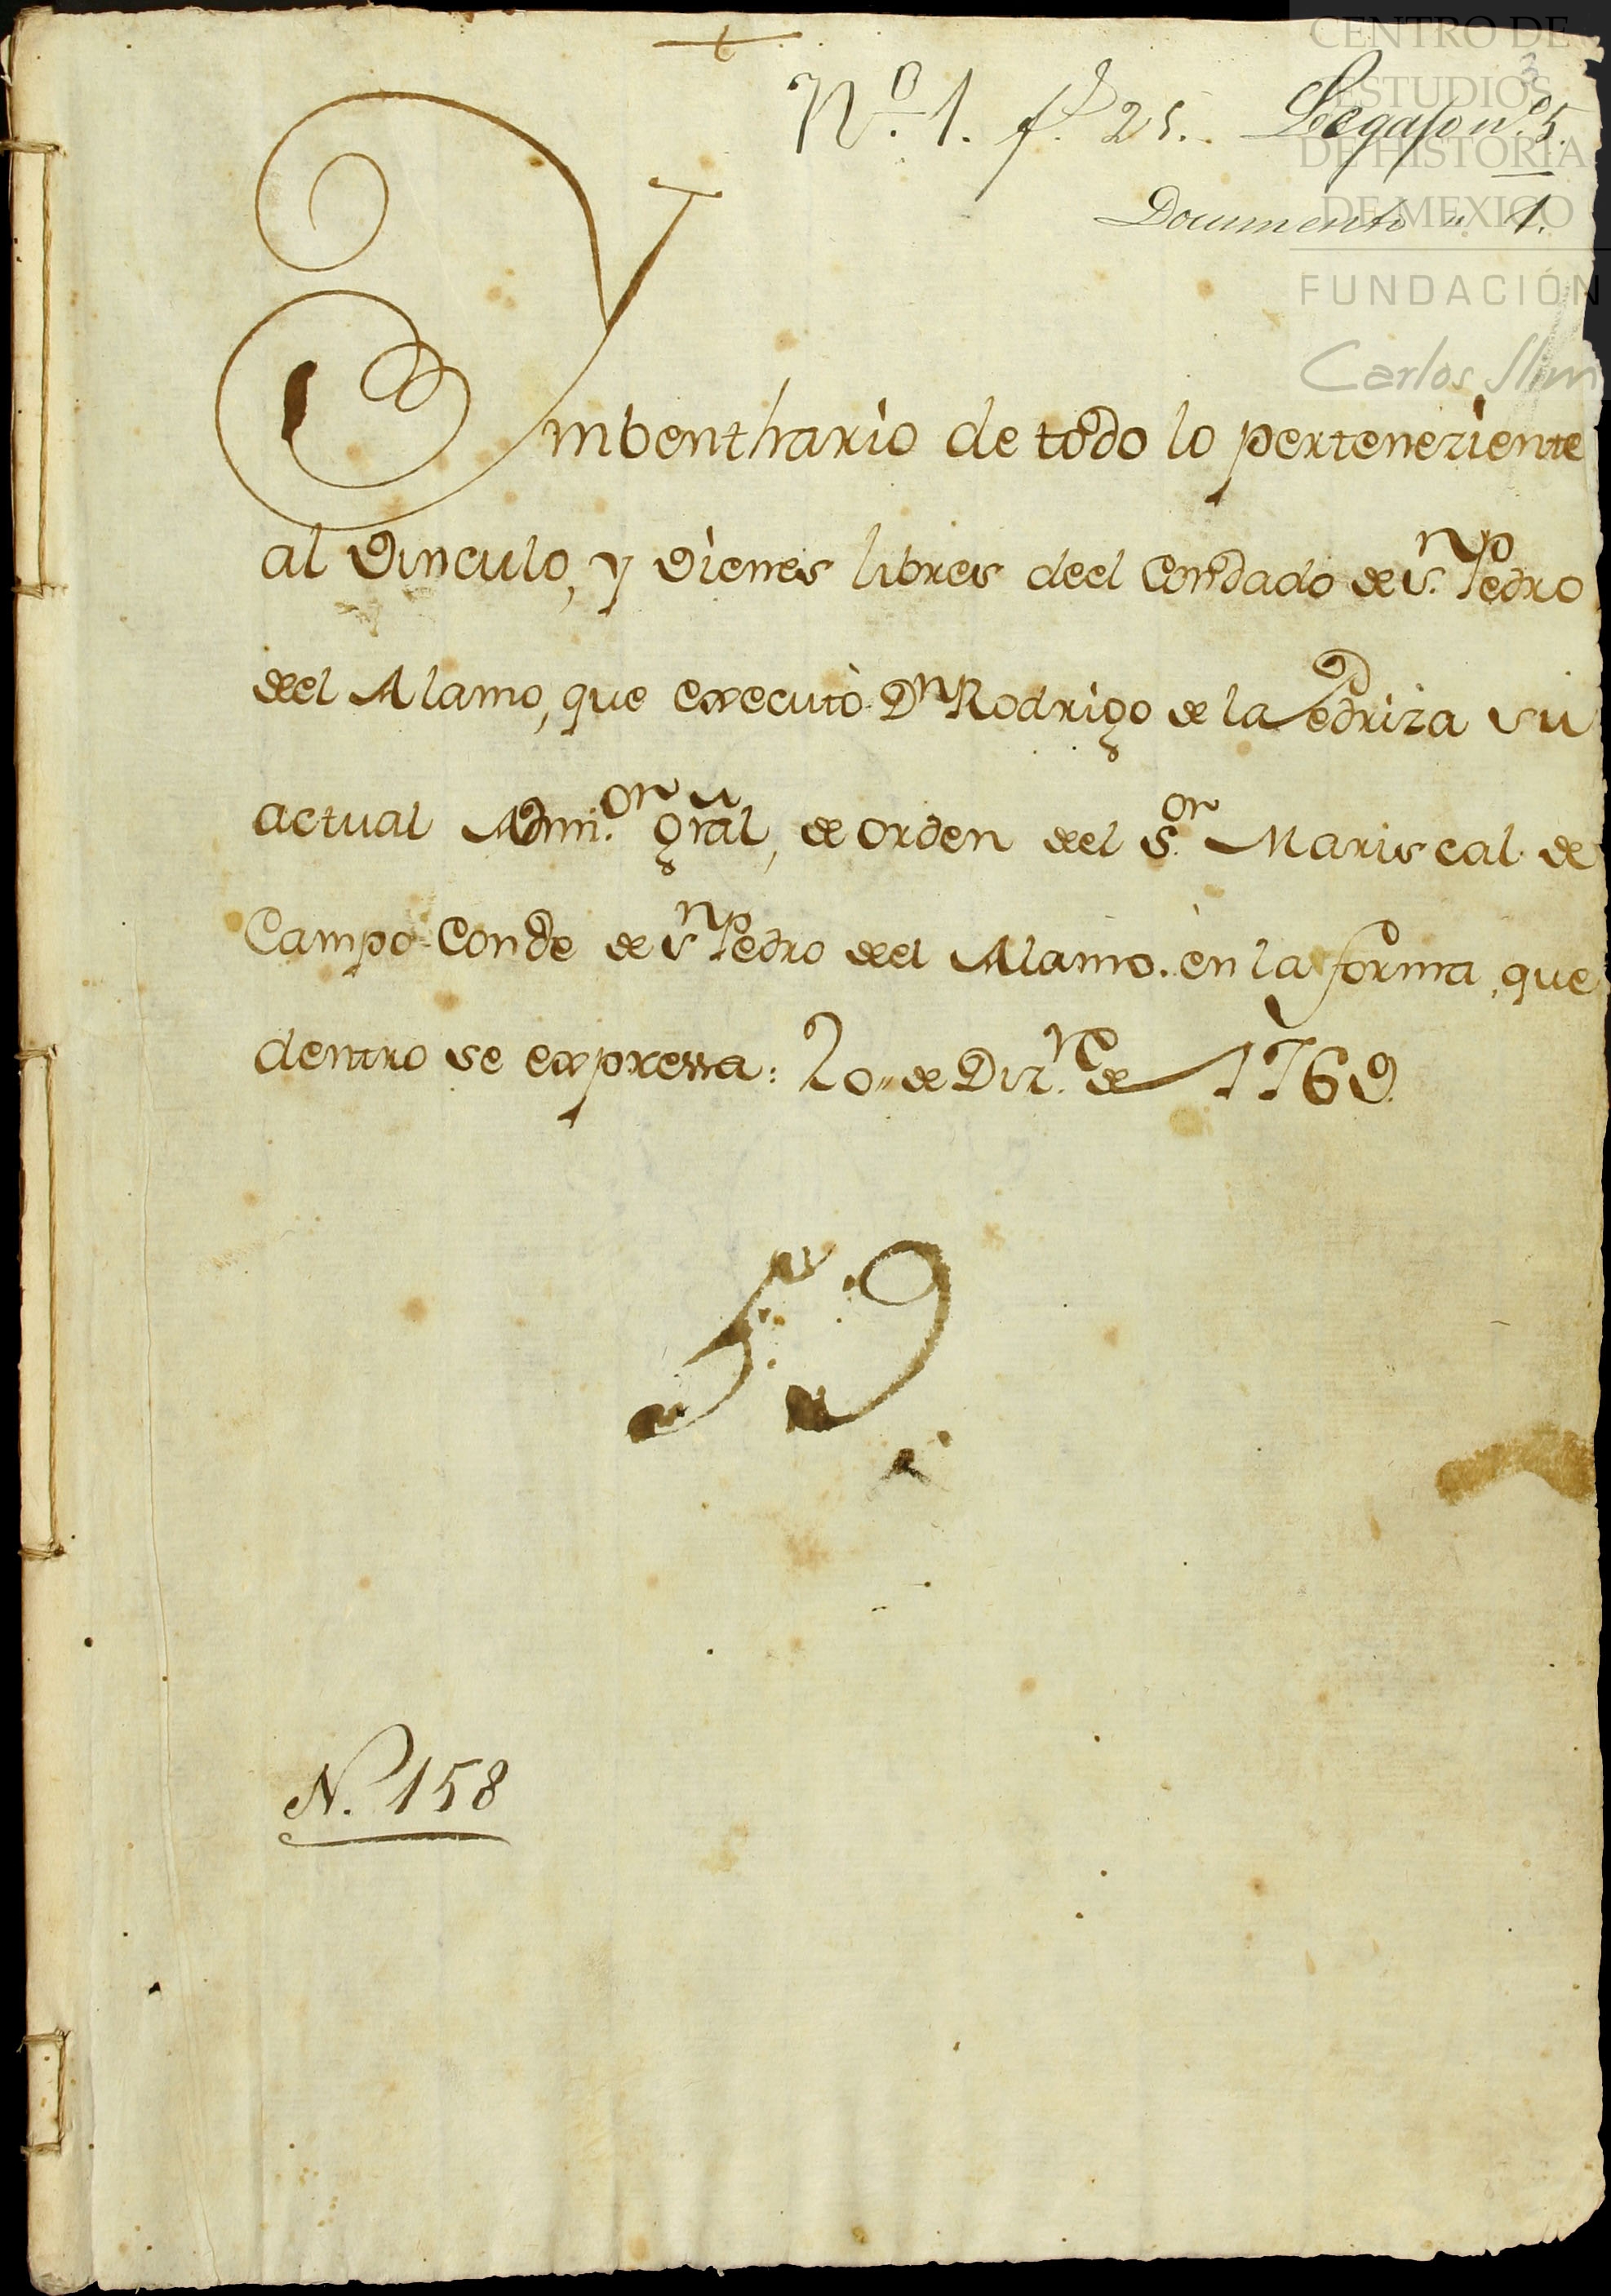 Nº. 1. f.s 25.. Legajo nº. 5.
3
Documento n. 1.
CENTRO DE
ESTUDIOS
DE HISTORIA
DE MEXICO
FUNDACIÓN
Carlos Slim
Ymbenthario de todo lo perteneziente
al Vinculo, y vienes libres deel Condado de Sn. Pedro
deel Alamo, que executò Dn Rodrigo de la Pedriza su
actual Admi.or gral, de orden deel S.or Mariscal de
Campo Conde de Sn Pedro deel Alamo. èn la forma, que
dentro se expressa: 20,, de Diz.re de 1769.
N. 158